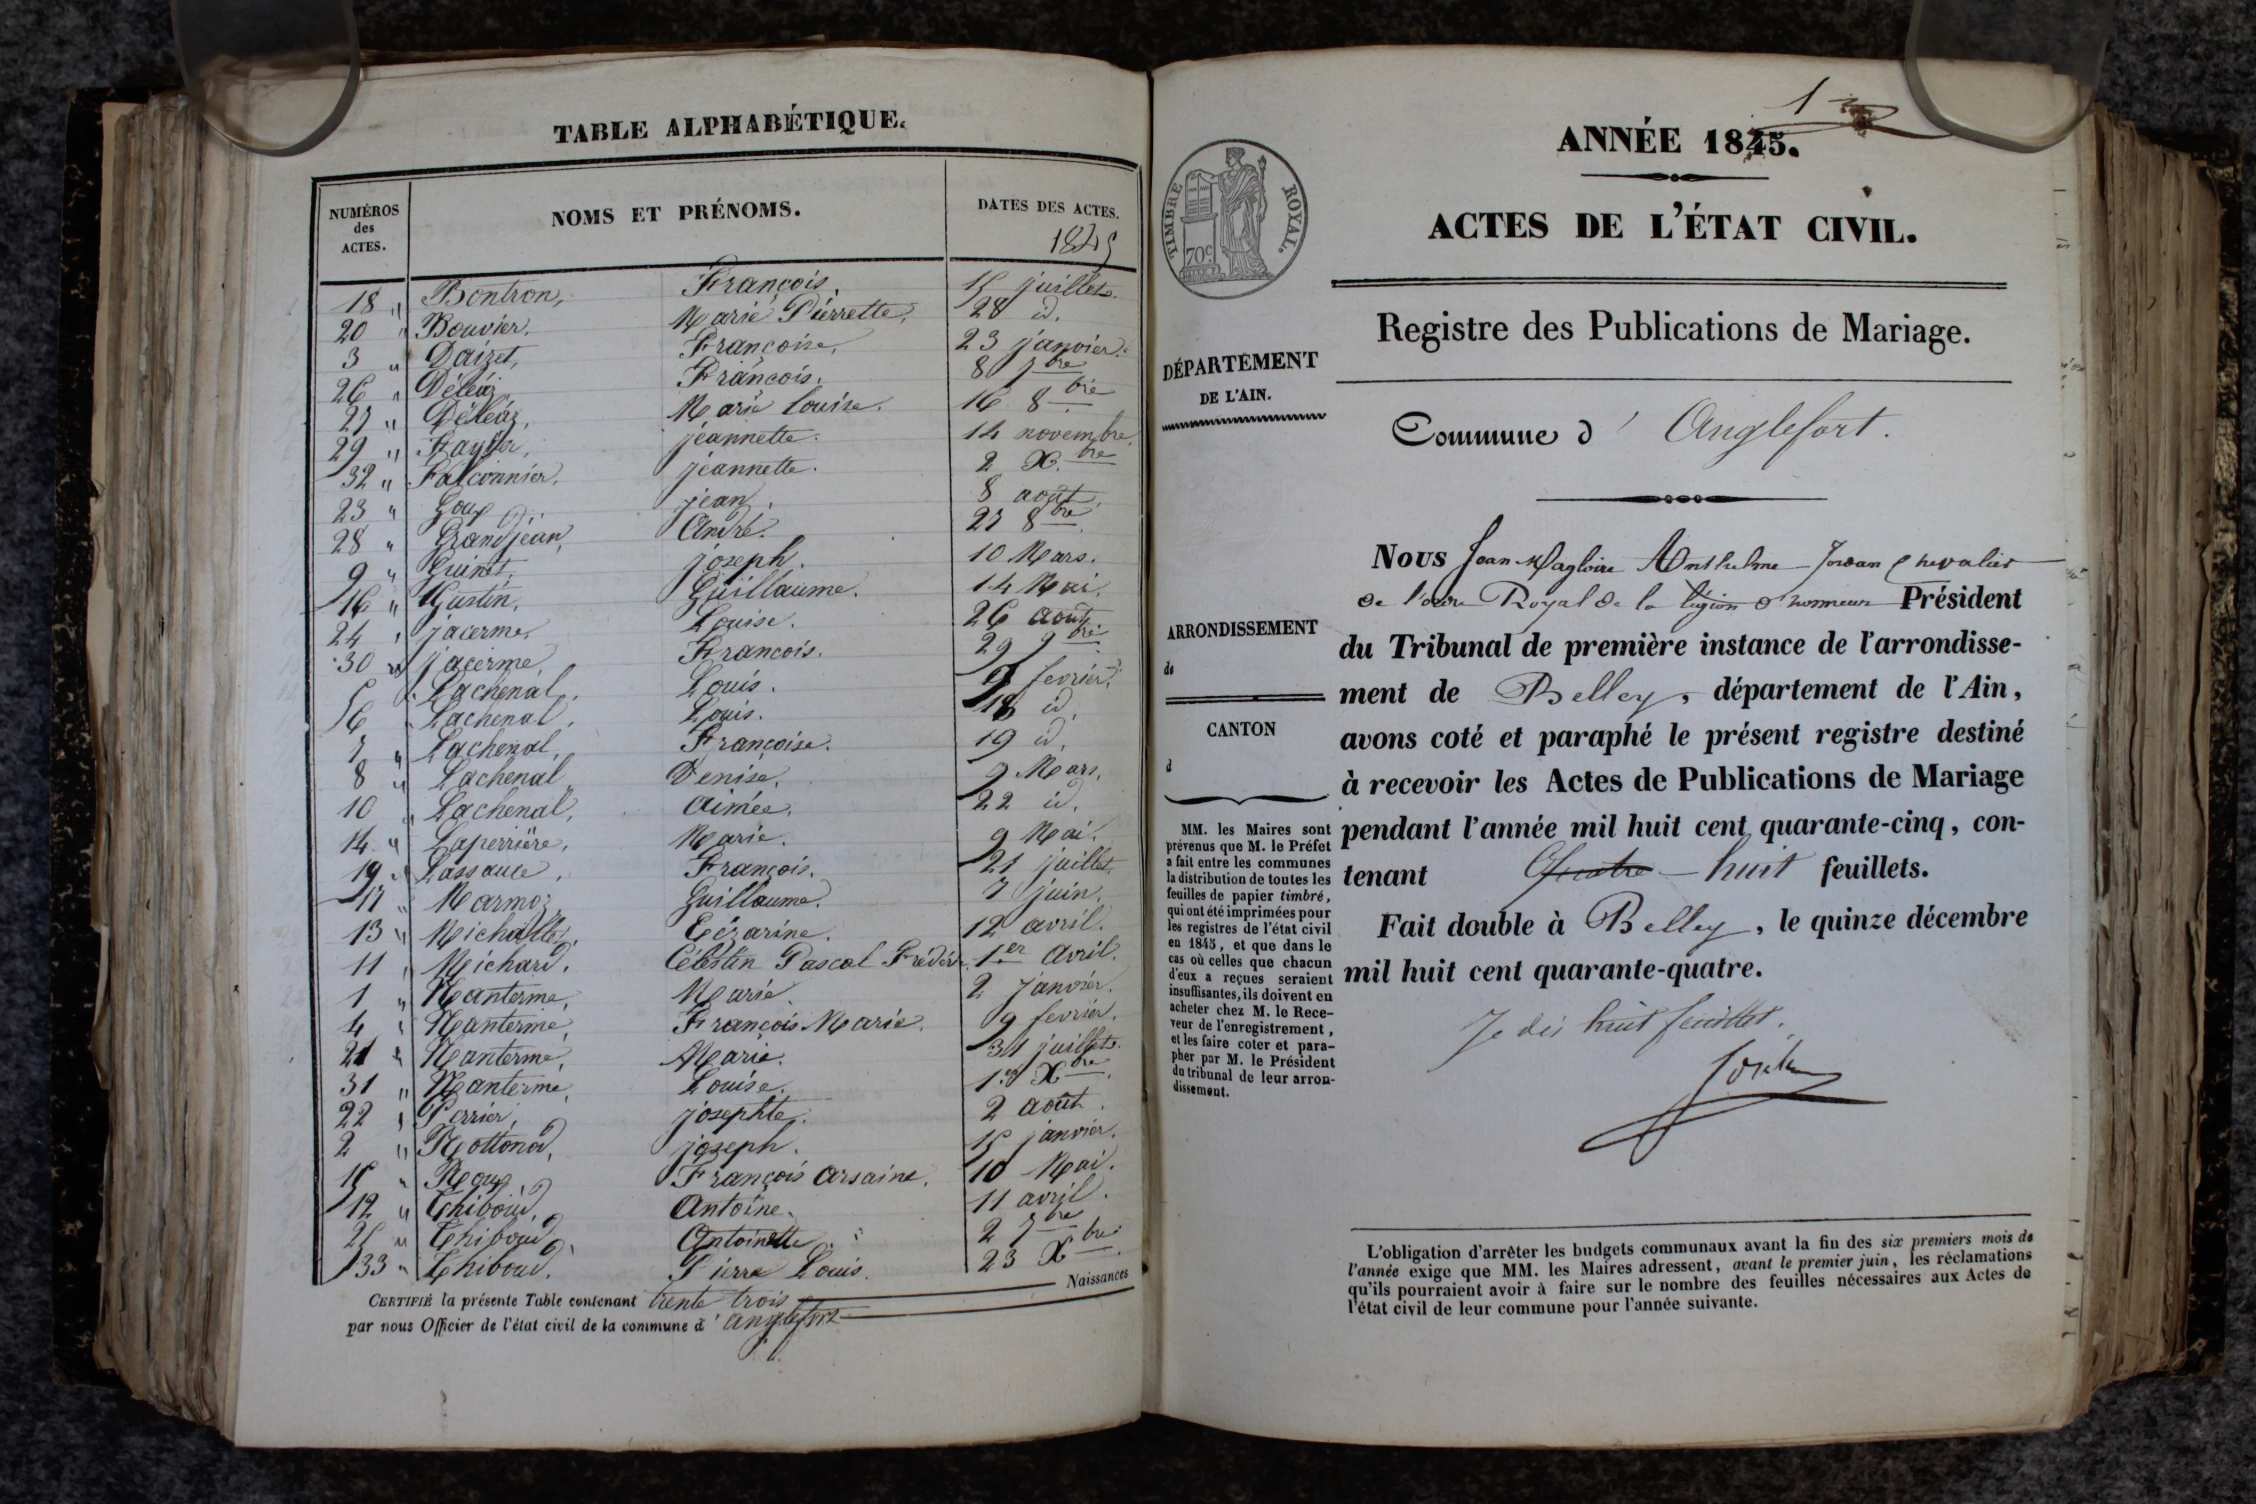 TABLE ALPHABÉTIQUE.
NUMÉROS des ACTES. NOMS ET PRÉNOMS. DATES DES ACTES.
1845
18 " Bontron, François, 15 juillet.
20 " Bouvier. Marie Pierrette. 28 id.
3 " Daizet, Françoise. 23 janvier.
26 " Déléaz, François. 8 7bre
27 " Déléaz, Marie Louise. 16 8bre
29 " jeannette. 14 novembre.
32 " Falconnier. jeannette. 2 X.bre
23 " Goux jean. 8 août.
28 " Grandjean, André. 27 8bre
9 " Guinet, joseph. 10 Mars.
16 " Gustin, Guillaume. 14 Mai.
24 " jacerme, Louise. 26 août
30 " jacerme, François. 29 9bre
5 " Lachenal, Louis. 9 fevrier.
6 " Lachenal, Louis. 18 id.
7 " Lachenal, Françoise. 19 id.
8 " Lachenal Denise. 9 Mars.
10 " Lachenal, Aimée. 22 id.
14 " Laperrière, Marie. 9 Mai.
19 " Lassauce, François. 21 juillet
17 " Marmoz Guillaume. 7 juin.
13 " Michallet, 12 avril.
11 " Michard. Célestin Pascal Frédéric 1er avril.
1 " Nanterme, Marie. 2 janvier.
4 " Nanterme, François Marie. 9 fevrier.
21 " Nanterme, Marie. 31 juillet.
31 " Nanterme, Louise. 1er Xbre.
22 " Perrier, josephte. 2 août.
2 " Rottond, joseph. 15 janvier.
15 " Roux, François Arsaine. 10 Mai.
12 " Thiboud, Antoine. 11 avril.
25 " Thiboud, Antoinette. 2 7bre
33 " Thiboud. Pierre Louis. 23 Xbre.
CERTIFIÉ la présente Table contenant trente trois Naissances
par nous Officier de l'état civil de la commune d' anglefort
1er
ANNÉE 1845.
ACTES DE L'ÉTAT CIVIL.
TIMBRE ROYAL.
70c.
Registre des Publications de Mariage.
DÉPARTEMENT
DE L'AIN.
Commune d' Anglefort.
Nous Jean Magloire Anthelme Jordan Chevalier
de l'ordre Royal de la légion d'honneur Président
du Tribunal de première instance de l'arrondisse-
ment de Belley, département de l'Ain,
avons coté et paraphé le présent registre destiné
à recevoir les Actes de Publications de Mariage
pendant l'année mil huit cent quarante-cinq, con-
tenant Quatre huit feuillets.
Fait double à Belley, le quinze décembre
mil huit cent quarante-quatre.
Je dis huit feuillets.
ARRONDISSEMENT
de
CANTON
d
MM. les Maires sont
prévenus que M. le Préfet
a fait entre les communes
la distribution de toutes les
feuilles de papier timbré,
qui ont été imprimées pour
les registres de l'état civil
en 1845, et que dans le
cas où celles que chacun
d'eux a reçues seraient
insuffisantes, ils doivent en
acheter chez M. le Rece-
veur de l'enregistrement,
et les faire coter et para-
pher par M. le Président
du tribunal de leur arron-
dissement.
L'obligation d'arrêter les budgets communaux avant la fin des six premiers mois de
l'année exige que MM. les Maires adressent, avant le premier juin, les réclamations
qu'ils pourraient avoir à faire sur le nombre des feuilles nécessaires aux Actes de
l'état civil de leur commune pour l'année suivante.